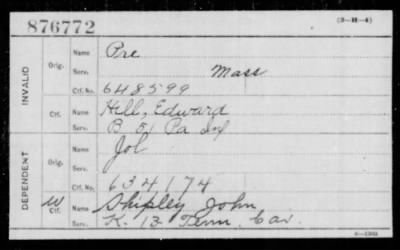 876772
(3-H-4)
INVALID
Orig.
Name Pre
Serv. Mass
Ctf. No. 648599
Ctf.
Name Hill, Edward
Serv. B 51 Pa Inf
DEPENDENT
Orig.
Name Joh
Serv.
Ctf. No. 634174
W
Ctf.
Name Shipley John
Serv. K. 13 Tenn. Cav.